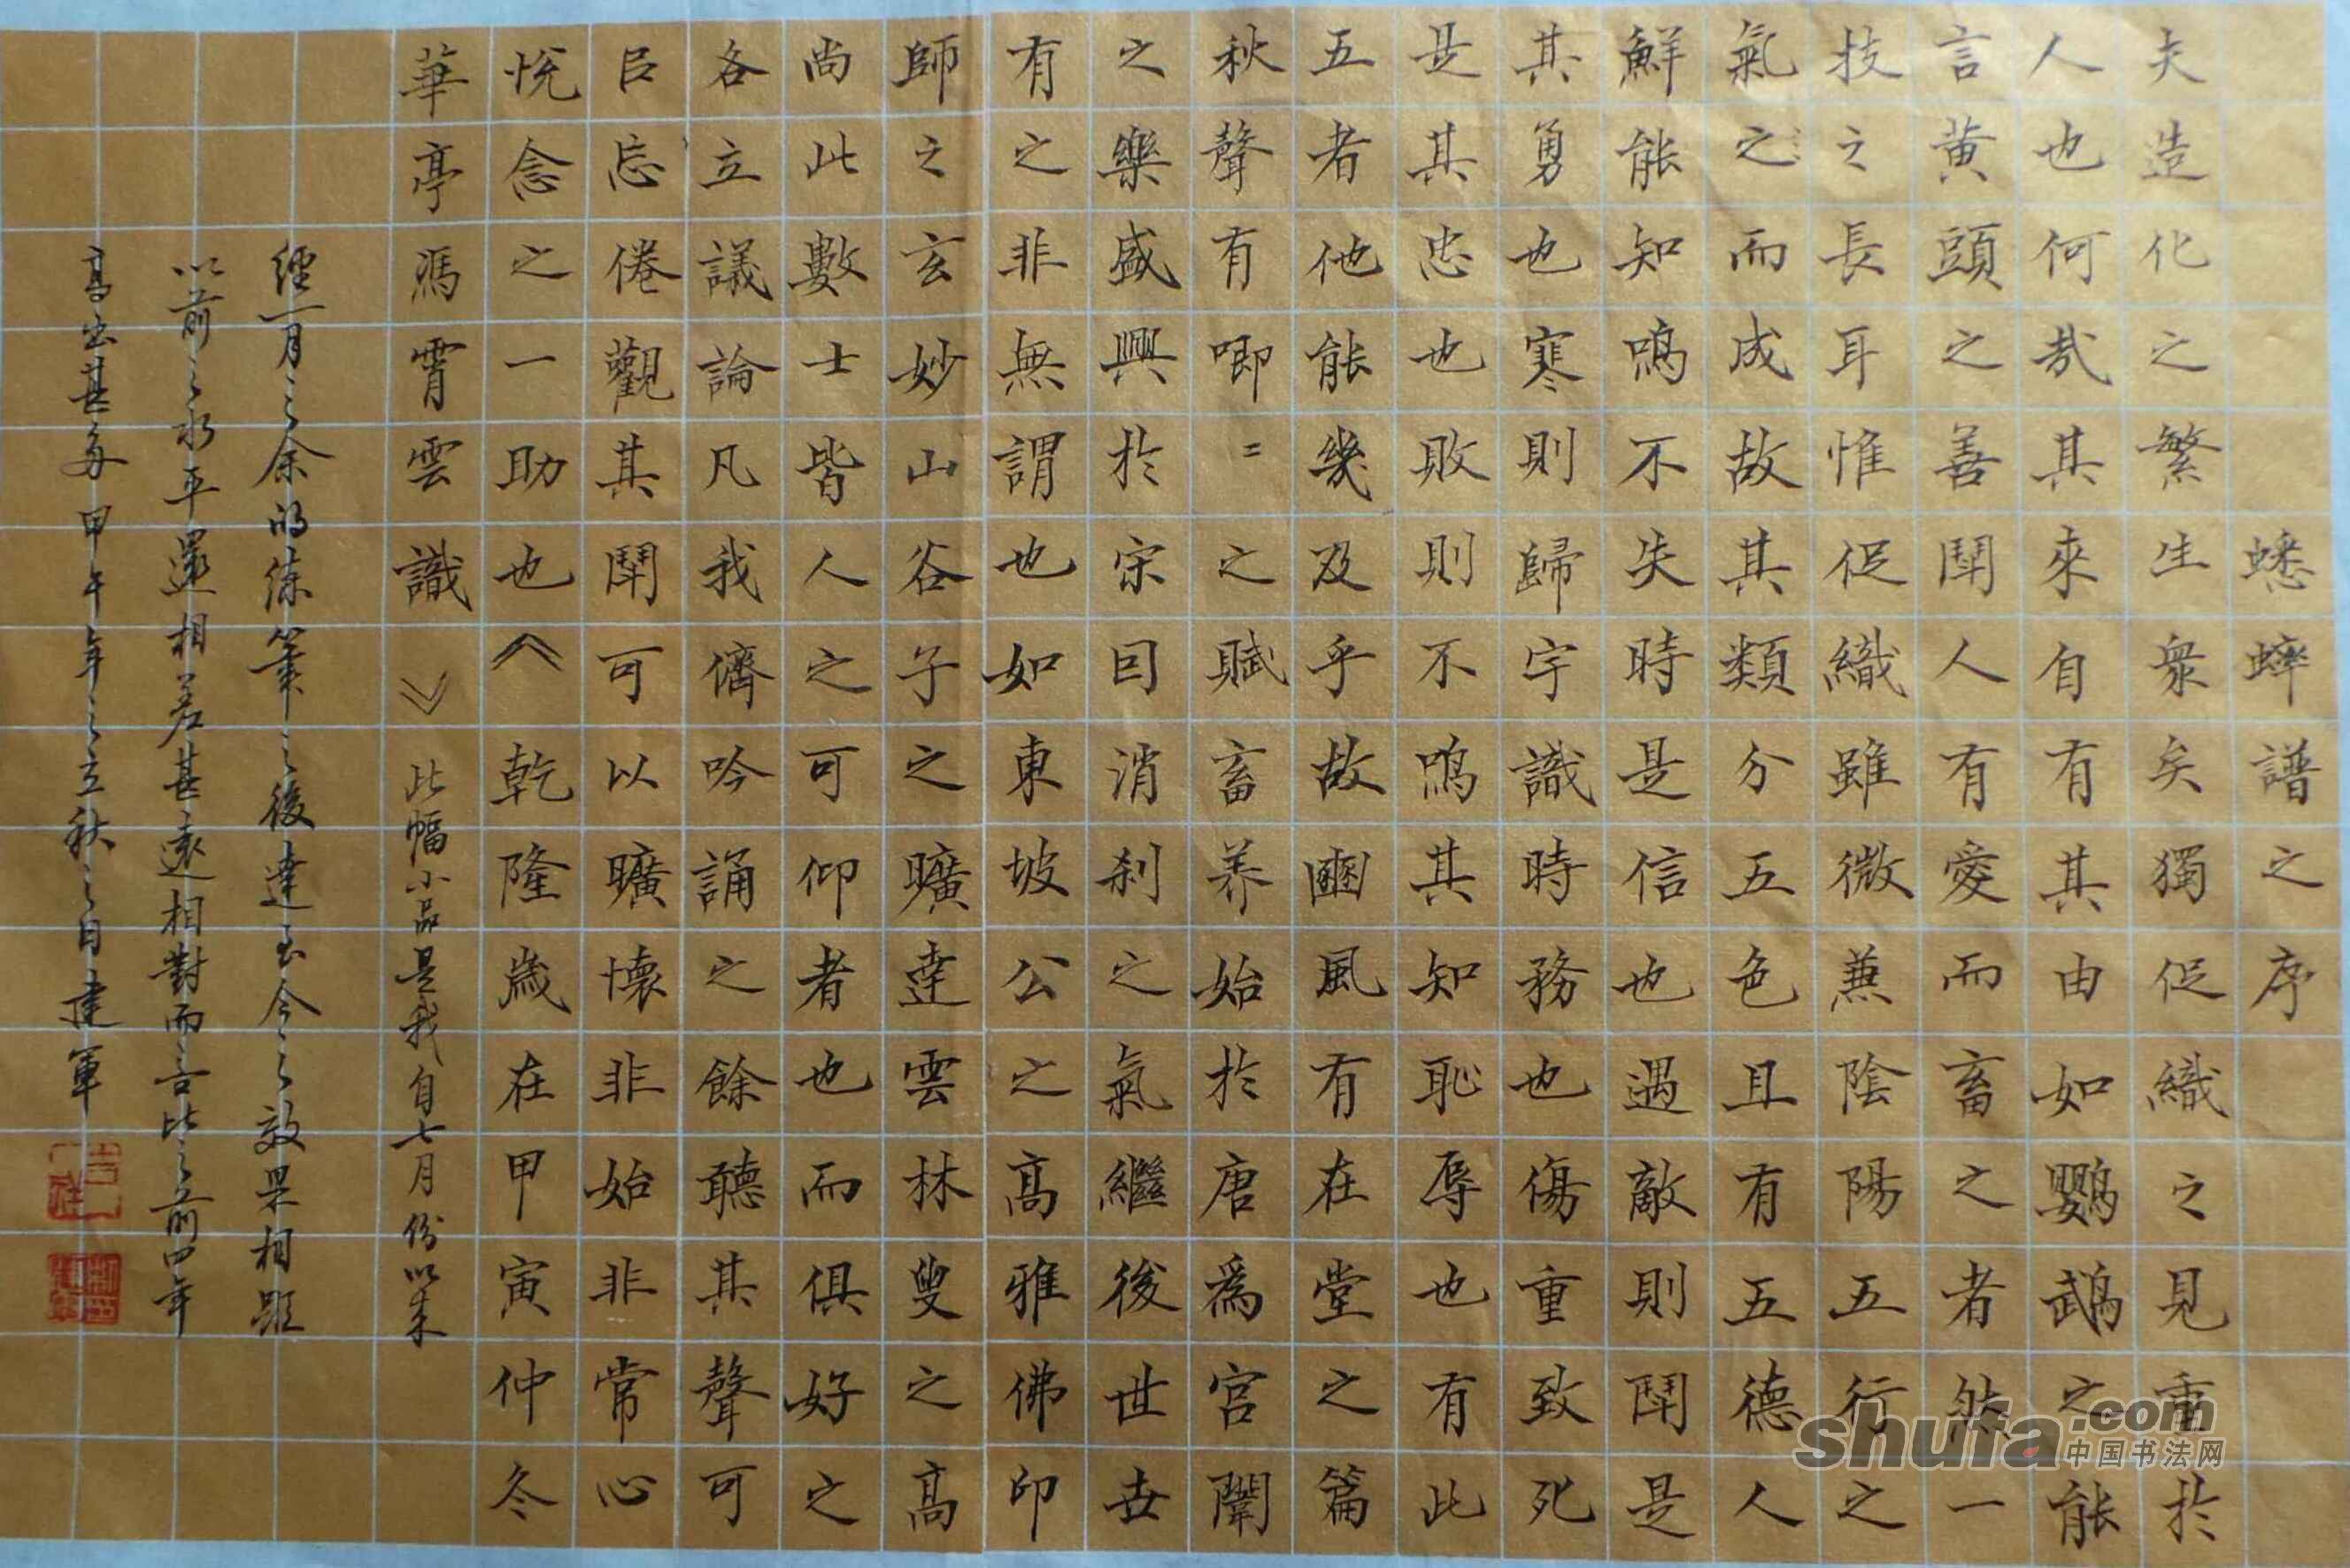 蟋蟀譜之序
夫造化之繁生衆矣獨促織之見重於
人也何哉其來自有其由如鸚鵡之能
言黄頭之善鬪人有愛而畜之者然一
技之長耳惟促織雖微兼陰陽五行之
氣之而成故其類分五色且有五德人
鮮能知鳴不失時是信也遇敵則鬪是
其勇也寒則歸宇識時務也傷重致死
是其忠也敗則不鳴其知恥辱也有此
五者他能幾及乎故豳風有在堂之篇
秋聲有唧〻之賦畜养始於唐爲宮闈
之樂盛興於宋囙消刹之氣繼後世丗
有之非無謂也如東坡公之高雅佛印
師之玄妙山谷子之曠達雲林叟之高
尚此數士皆人之可仰者也而俱好之
各立議論凡我儕吟誦之餘聽其聲可
㠯忘倦觀其鬪可以曠懷非始非常心
悅念之一助也《乾隆歲在甲寅仲冬
華亭馮霄雲識》此幅小品是我自七月份以来
經一月之余的练筆之後達至今之效果相距
以前之水平還相差甚遠相對而言比之前四年
高出甚多甲午年之立秋之日建軍
吉祥
shufa.com
中国书法网